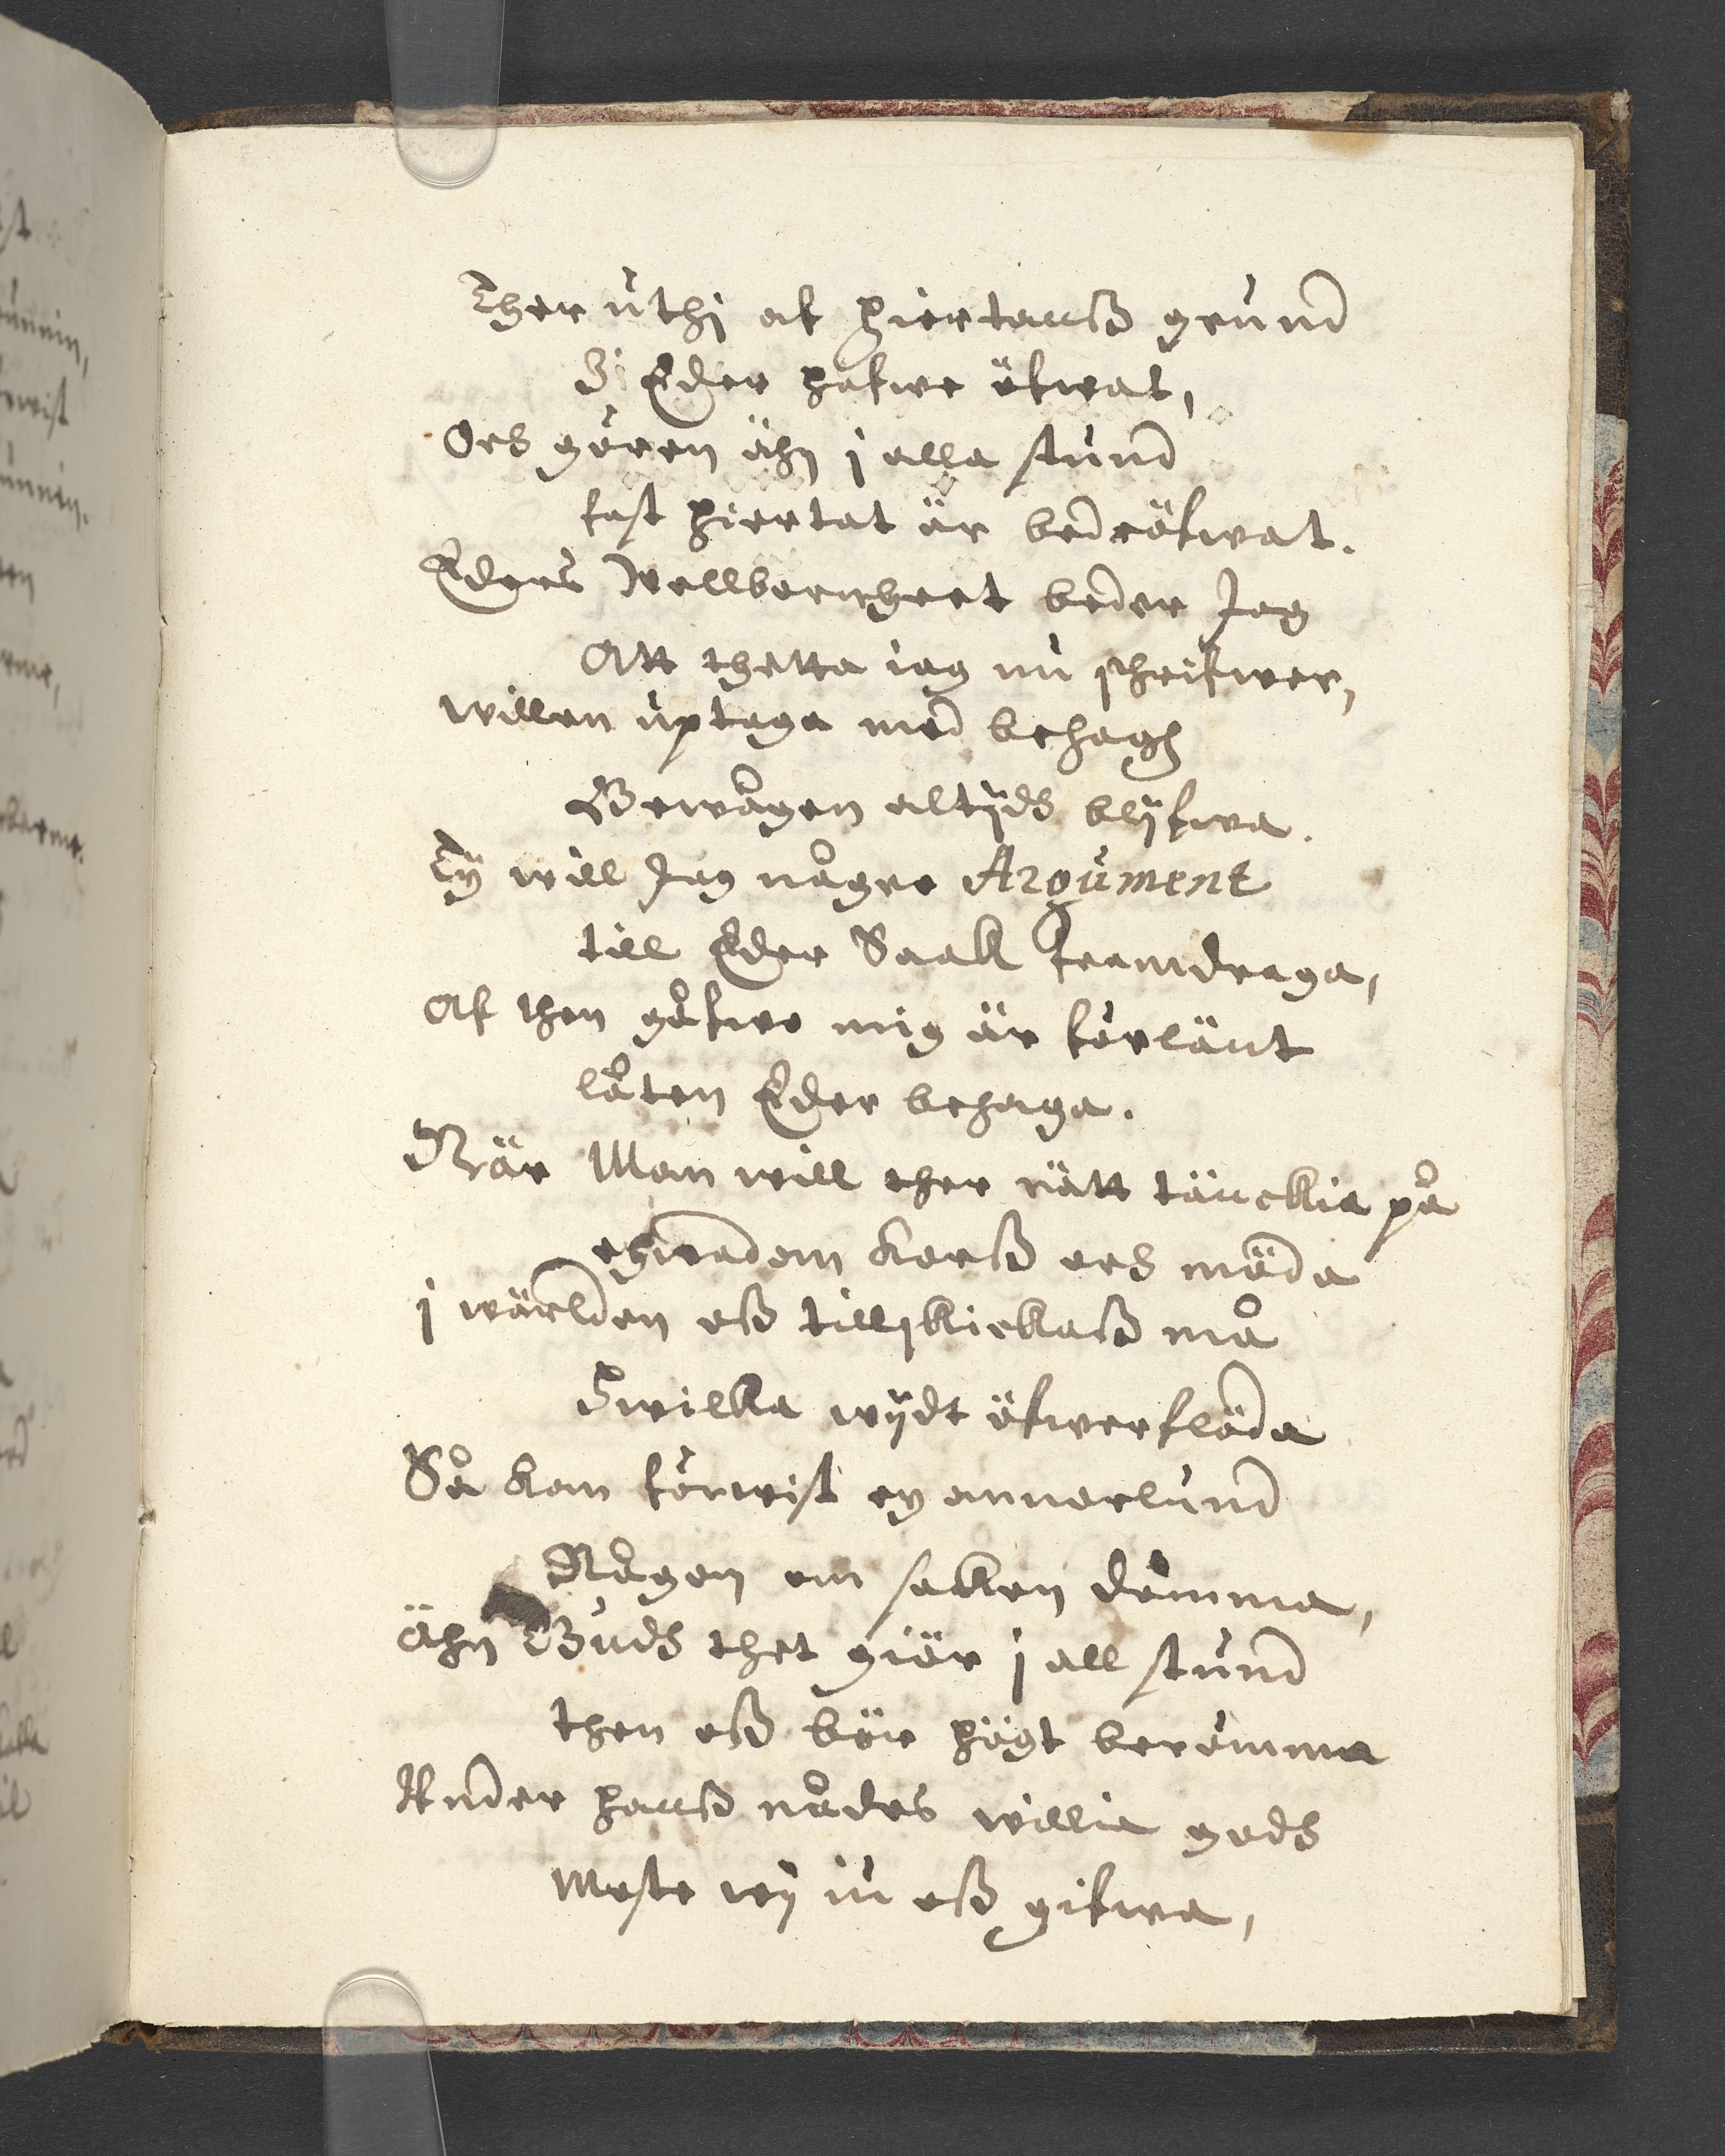 Ther uthj af hiertanß grund
I Eder hafwe öfwat,
Och gören ähn j alla stund
fast hiertat är bedröfwat.
Eders Wellborenheet beder Jag
Att thetta iag nu schrifwer,
willen uptaga med behagh
Bewågen altijdh blijfwa.
Ty will Jag någre Argument
till Eder Saak framdraga,
Af then gåfwo mig är förlänt
låten Eder behaga.
När Man will ther rätt tänckia på
ehwadom korß och möda
j wärlden oß tillskickaß må
Hwilka wijdt öfwerflöda
Så kan förwist ey annorlund
Någon om saken dömma,
ähn Gudh thet giör j all stund
then oß bör högt berömma
Under hanß nådes willia godh
Moste wij iu oß gifwa,